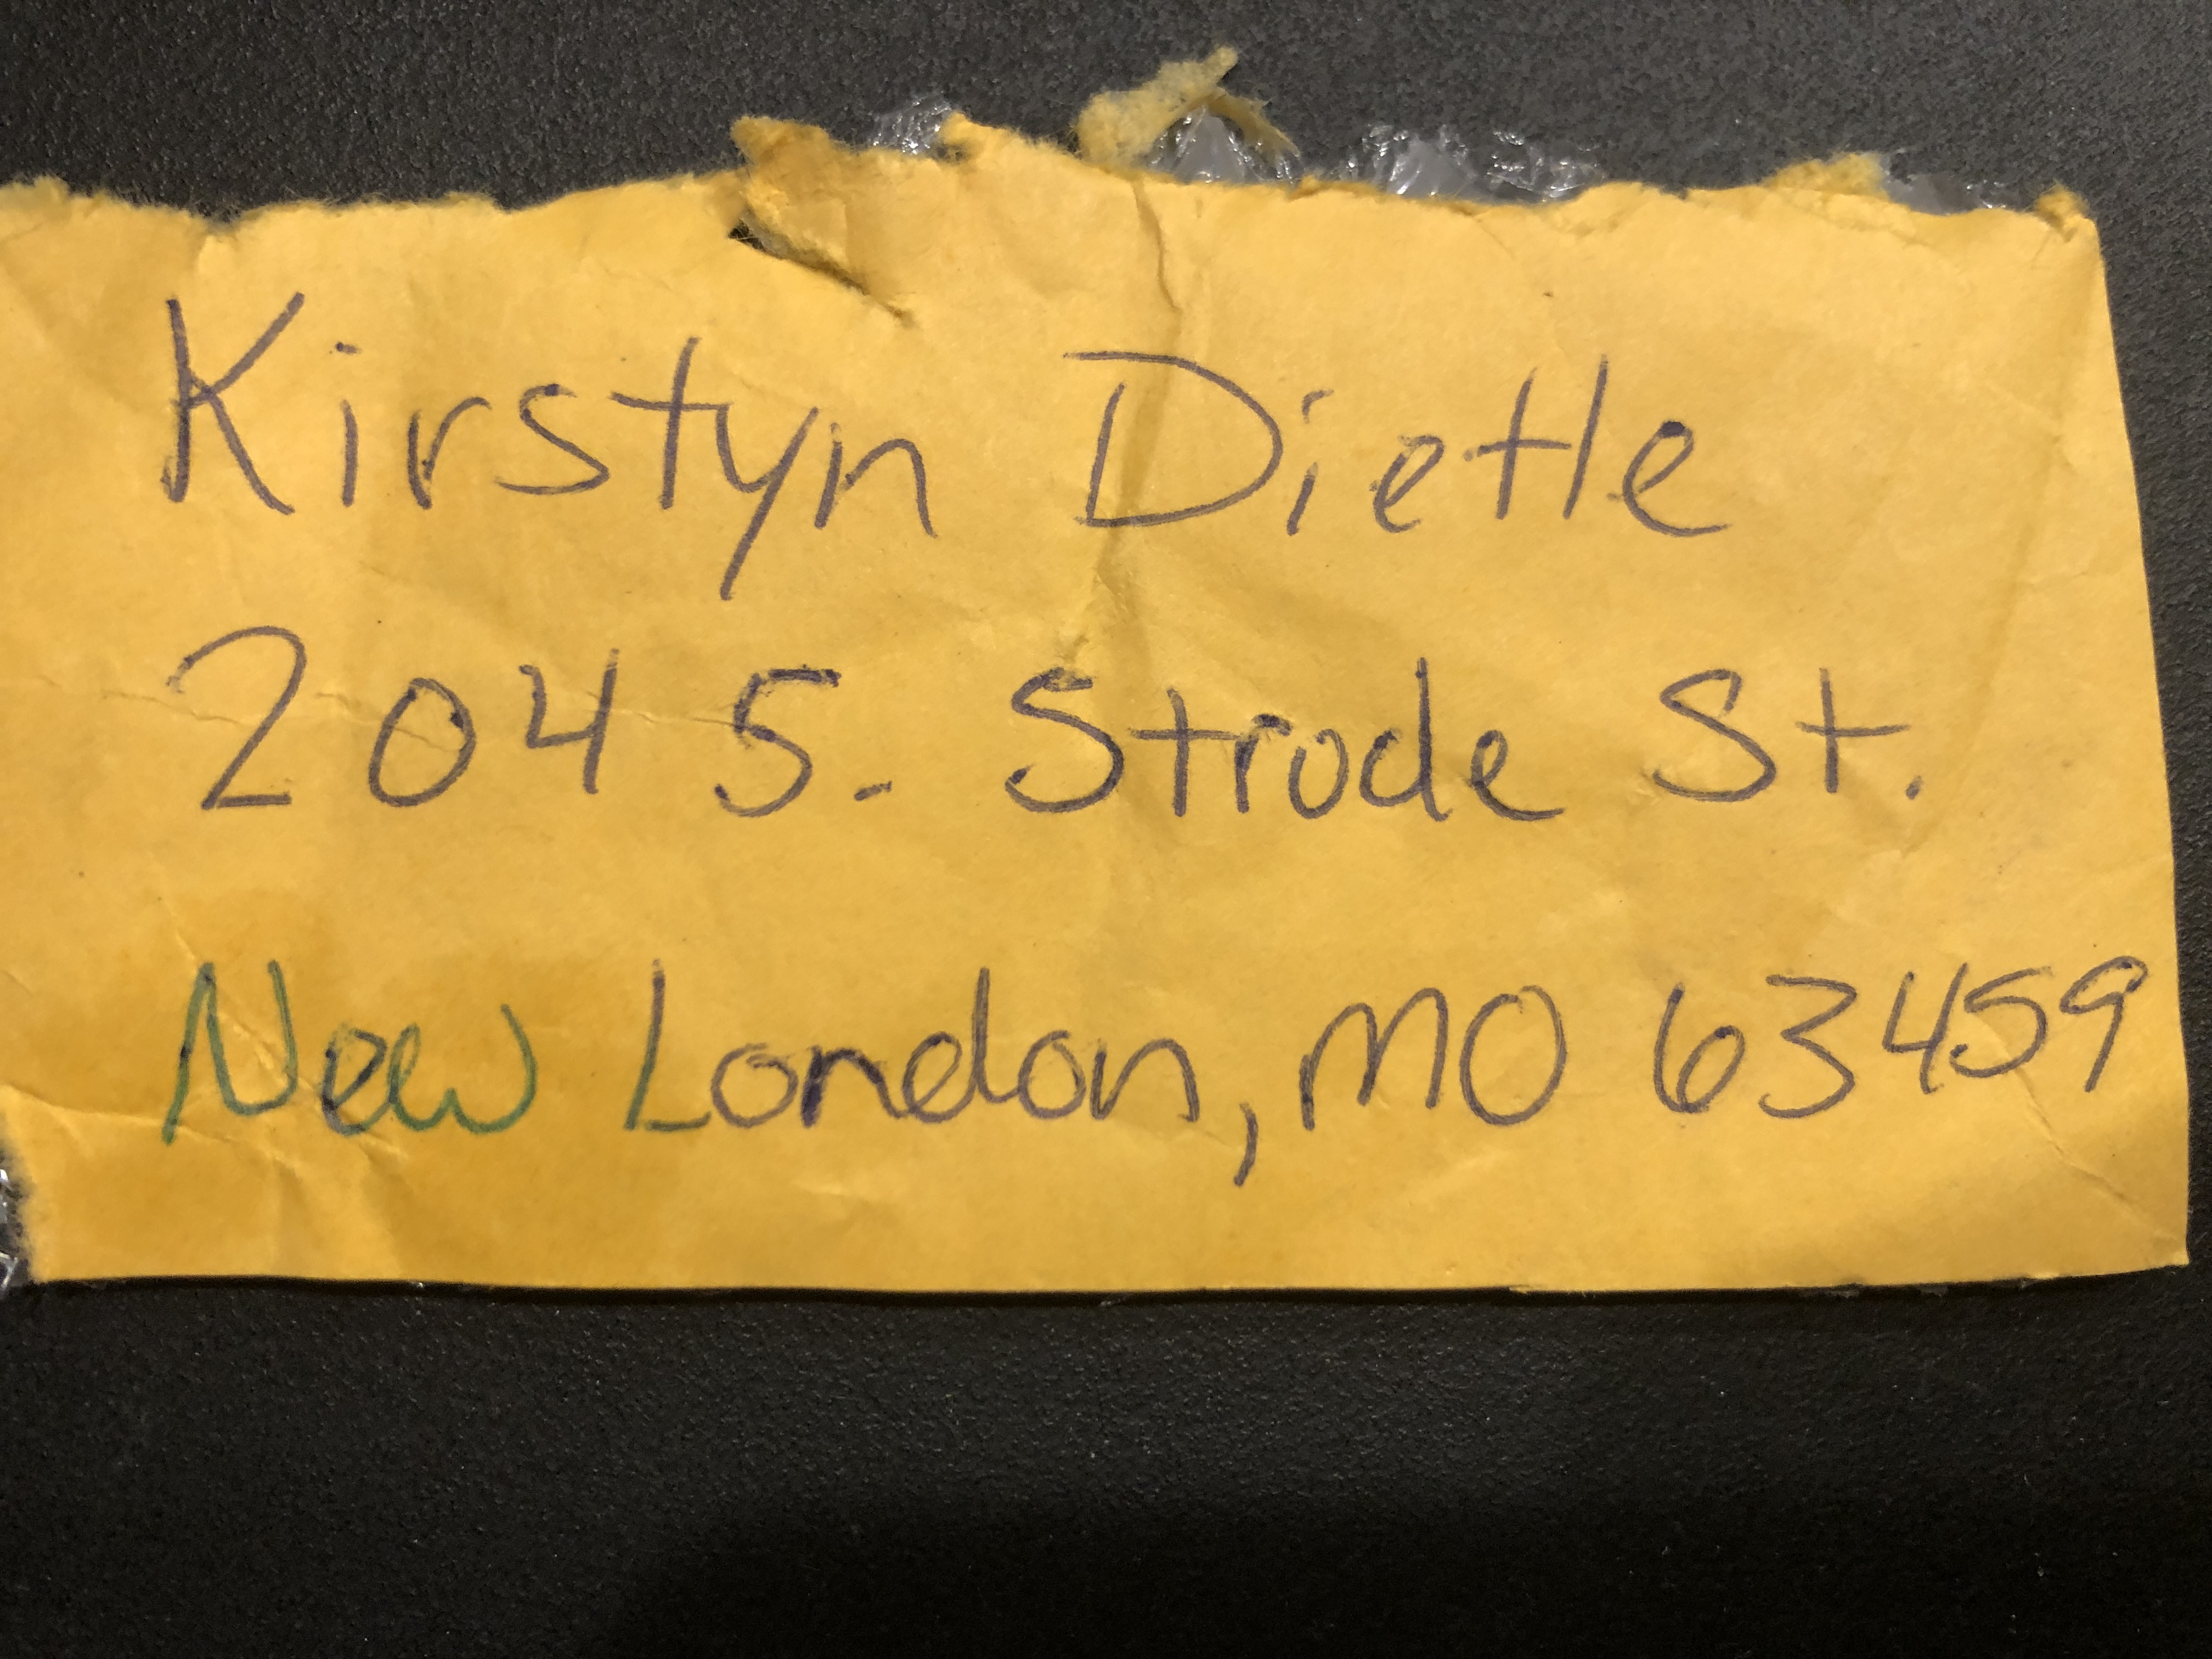 Kirstyn Dietle
204 S. Strode St.
New London, MO 63459